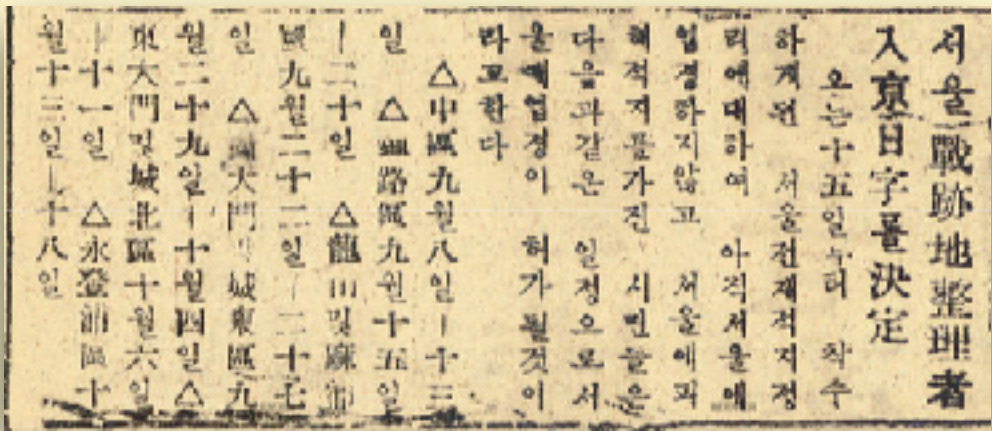 서울戰跡地整理者
入京日字를決定
오는十五일부터 착수
하게된 서울전재적지정
리에대하여 아직서울에
입경하지않고 서울에괴
해적지를가진 시민들은
다음과같은 일정으로서
울에입경이 허가될것이
라고한다
△中區九월八일ー十三
일 △鍾路區九월十五일
ー二十일 △龍山및麻浦
區九월二十二일ー二十七
일 △西大門및城東區九
월二十九일ー十월四일△
東大門및城北區十월六일
ー十一일 △永登浦區十
월十三일ー十八일